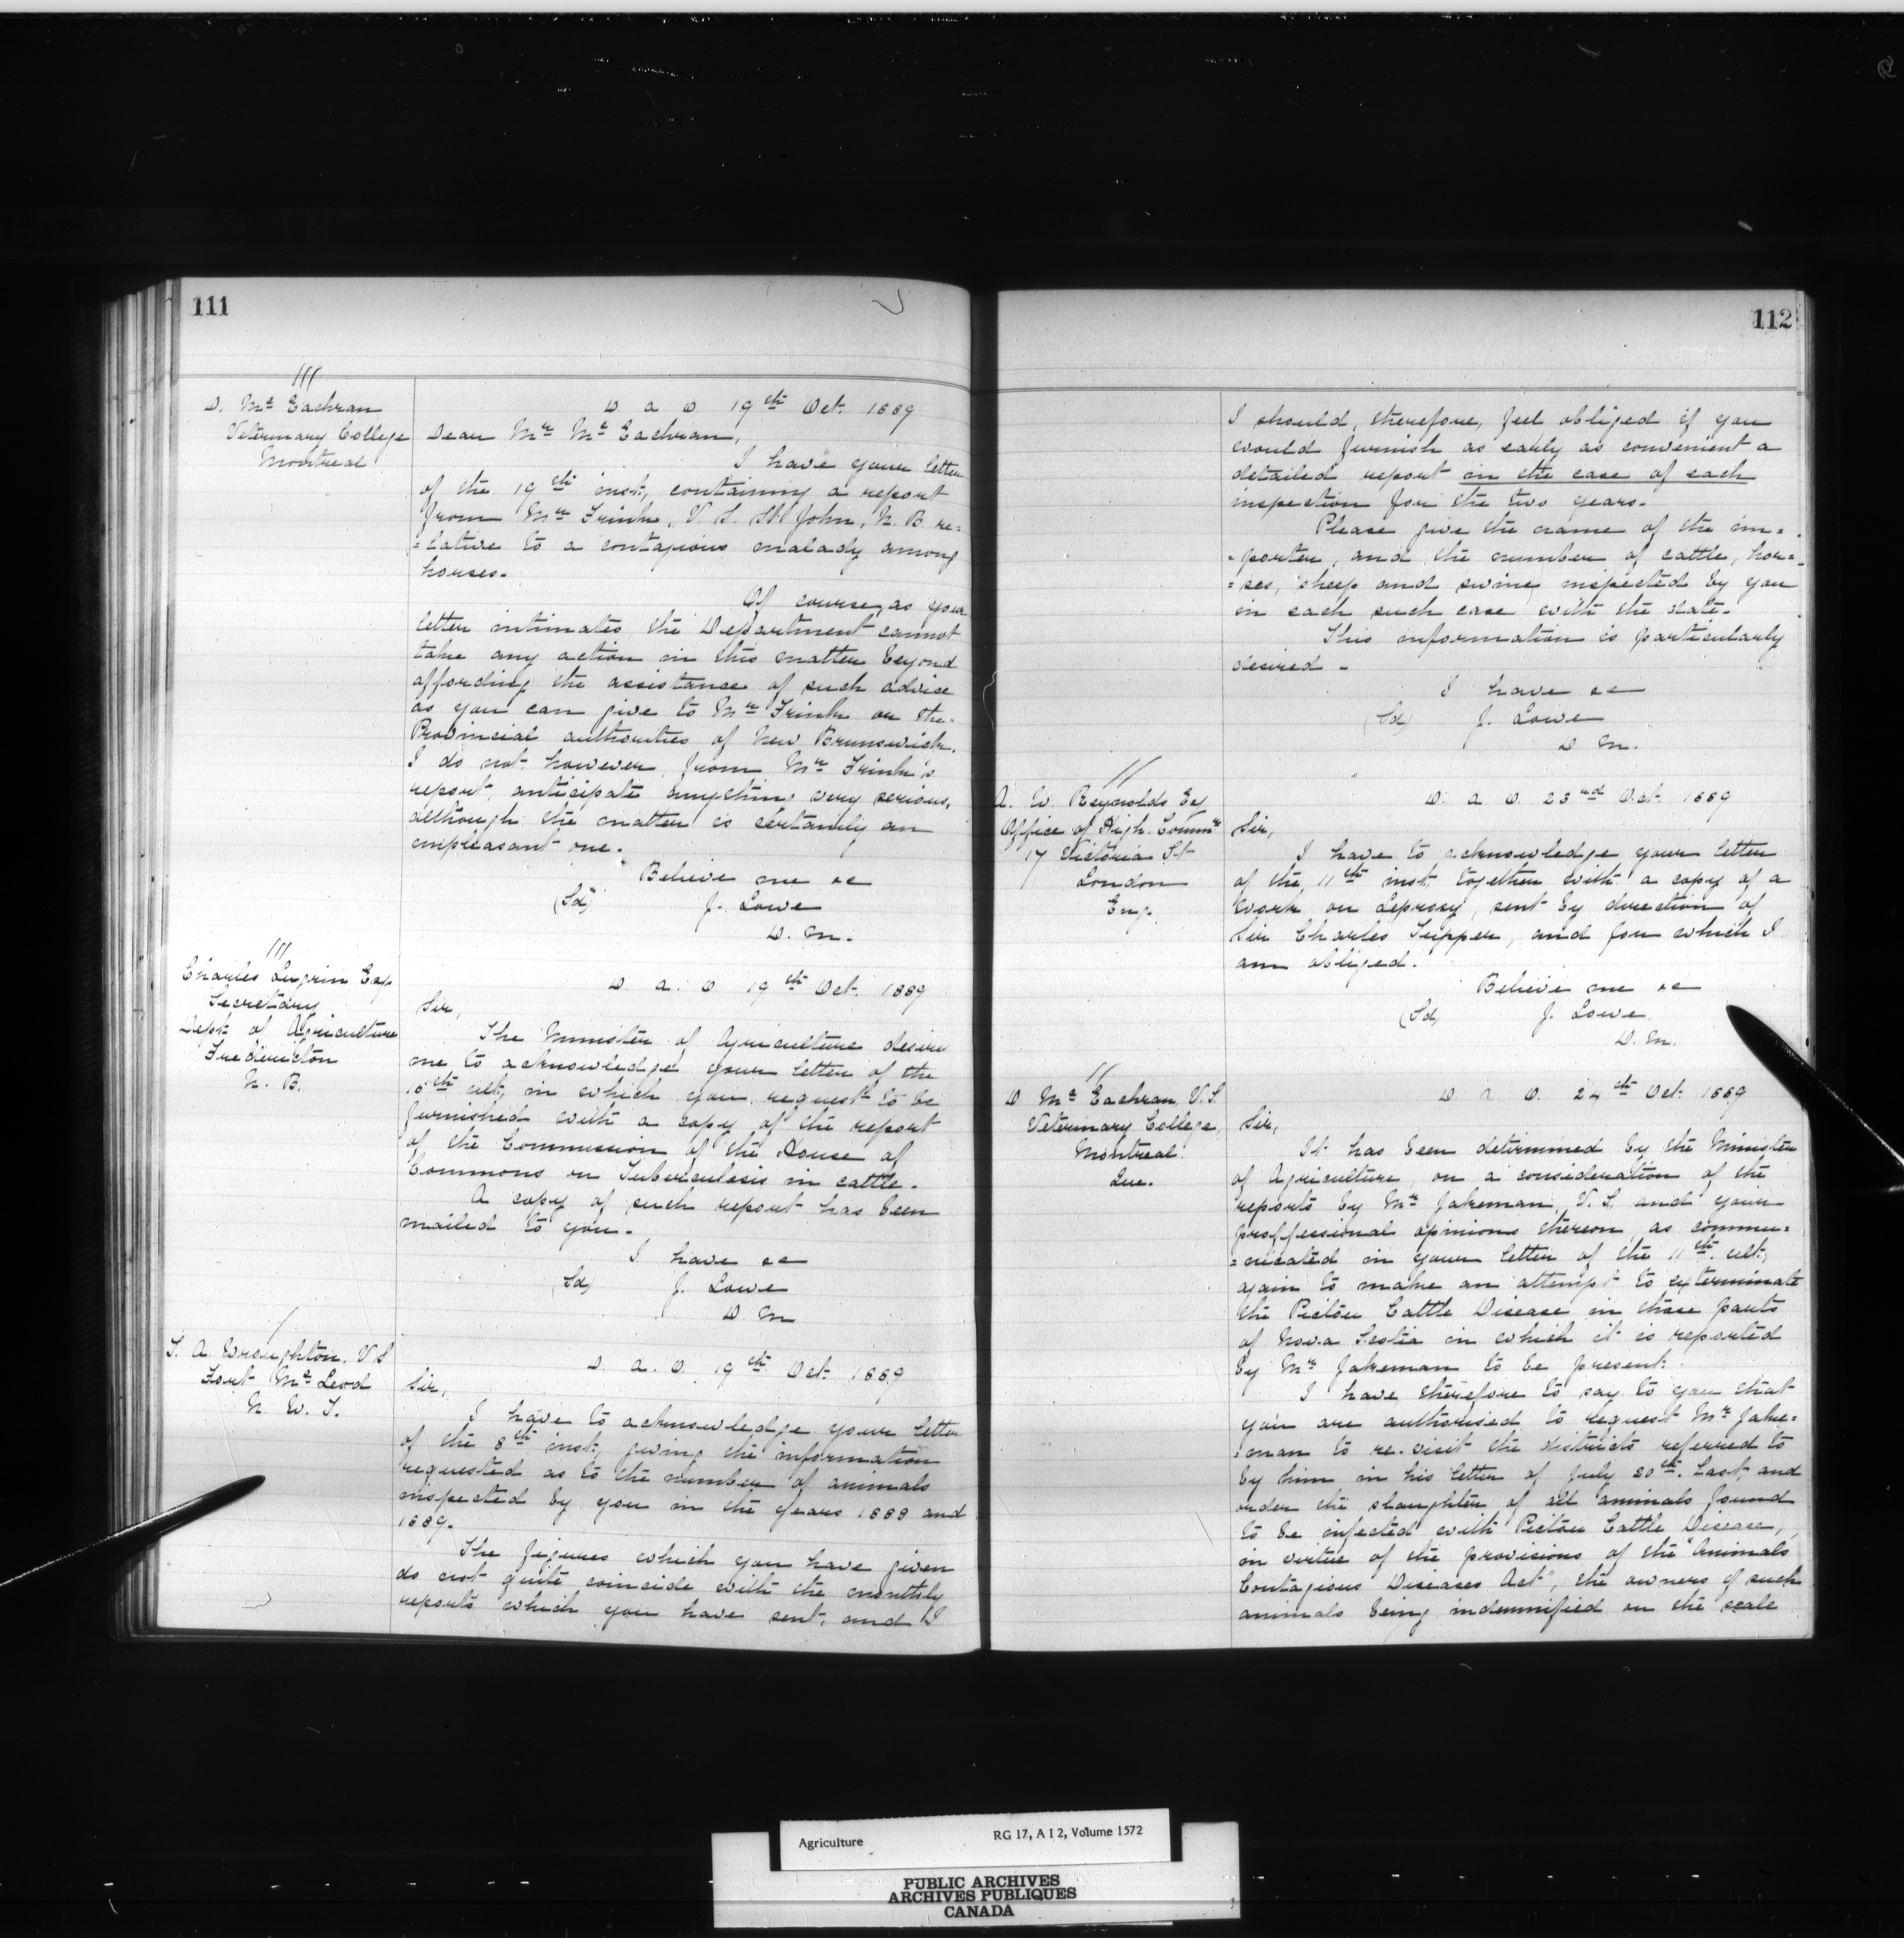 111
D. Mc Eachran
Veterinary College
Montreal
D. a O. 19th Oct. 1889
Dear Mr Mc Eachran,
I have your letter
of the 19th inst., containing a report
from Mr Frink, V. S. St John, N. B. re=
=lative to a contagious malady among
horses.
Of course, as your
letter intimates the Department cannot
take any action in this matter beyond
affording the assistance of such advice
as you can give to Mr Frink or the
Provincial authorities of New Brunswick.
I do not, however, from Mr Frink's
report, anticipate anything very serious,
although the matter is certainly an
unpleasant one.
Believe me &c
(Sd) J. Lowe
D. M.
Charles Lugrin Esq.
Secretary
Dept. of Agriculture
Fredericton
N. B.
D. a. O 19th Oct. 1889
Sir,
The Minister of Agriculture desires
me to acknowledge your letter of the
ult, in which you request to be
furnished with a copy of the report
of the Commission of the House of
Commons on Tuberculosis in cattle.
A copy of such report has been
mailed to you.
I have &c
(Sd) J. Lowe
D. M
T. A. Wroughton. V S
Fort Mc Leod
N. W. T.
D. a. O. 19th Oct. 1889
Sir,
I have to acknowledge your letter
of the 8th inst, giving the information
requested as to the number of animals
inspected by you in the years 1888 and
1889.
The figures which you have given
do not quite coincide with the monthly
reports which you have sent, and I
112
I should, therefore, feel obliged if you
would furnish as early as convenient a
detailed report in the case of each
inspection for the two years.
Please give the name of the im=
=porter, and the number of cattle, hor=
=ses, sheep and swine inspected by you
in each such case with the date.
This information is particularly
desired -
I have &c
(Sd) J. Lowe
D M.
A. W. Reynolds Esq
Office of High. Commr
17 Victoria St
London
Eng.
D. a O. 23rd Oct. 1889
Sir,
I have to acknowledge your letter
of the 11th inst, together with a copy of a
work on Leprosy, sent by direction of
Sir Charles Tupper, and for which I
am obliged.
Believe me &c
(Sd) J. Lowe
D. M.
D Mc Eachran, V. S.
Veterinary College,
Montreal.
Que.
D. a O. 24th Oct. 1889
Sir,
It has been determined by the Minister
of Agriculture, on a consideration of the
reports by Mr Jakeman V. S. and your
proffessional opinions thereon, as commu=
=nicated in your letter of the 11th ult,
again to make an attempt to exterminate
the Pictou Cattle Disease in those parts
of Nova Scotia in which it is reported
by Mr Jakeman to be present.
I have therefore to say to you that
you are authorised to request Mr Jake=
=man to re-visit the districts referred to
by him in his letter of July 30th. last, and
order the slaughter of all animals found
to be infected with Pictou Cattle Disease,
in virtue of the provisions of the "Animals
Contagious Diseases Act", the owners of such
animals being indemnified on the scale
Agriculture RG 17, A I 2, Volume 1572
PUBLIC ARCHIVES
ARCHIVES PUBLIQUES
CANADA